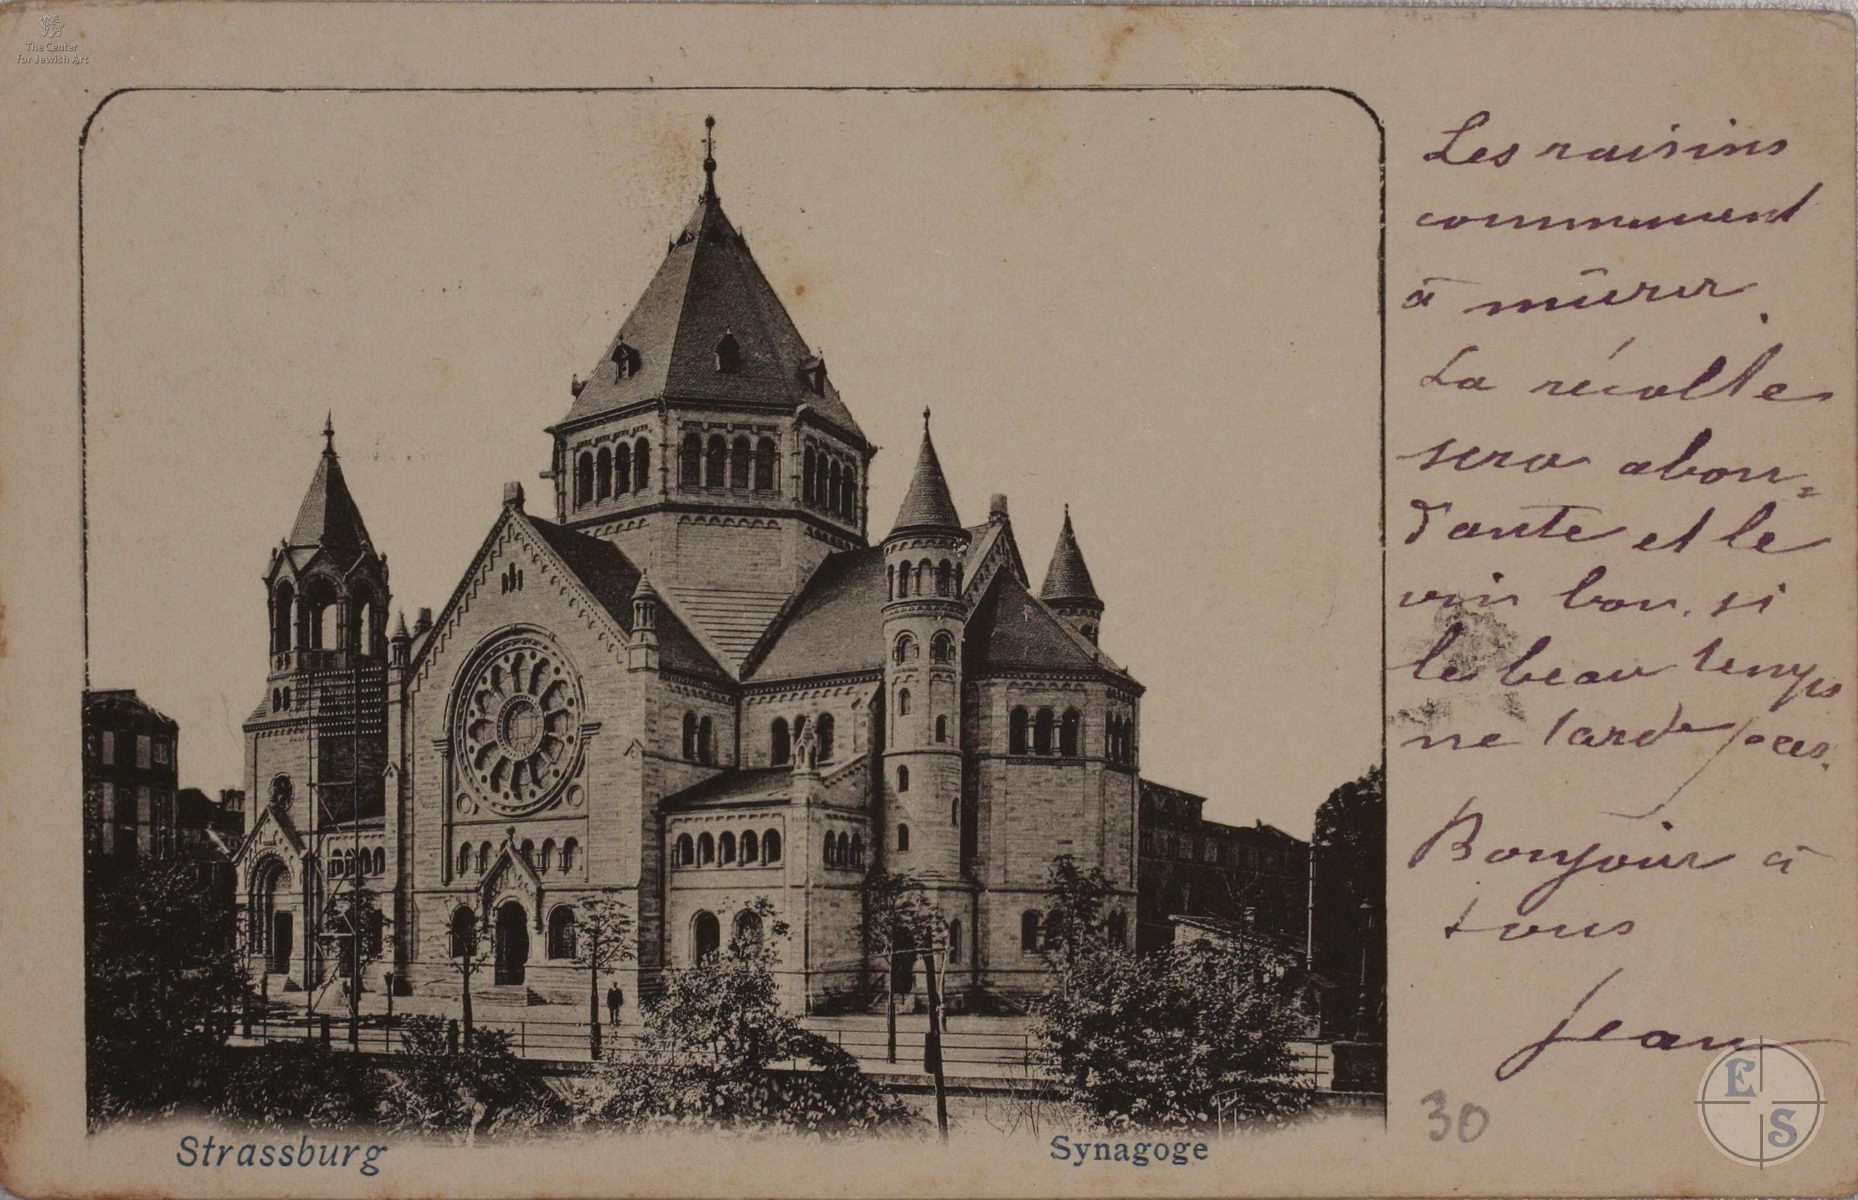 The Center
for Jewish Art
Les raisins
commencent
à mûrir.
La récolte
sera abon=
dante et le
vin bon, si
le beau temps
ne tarde pas.
Bonjour à
tous
Jean
30
E
S
Strassburg
Synagoge